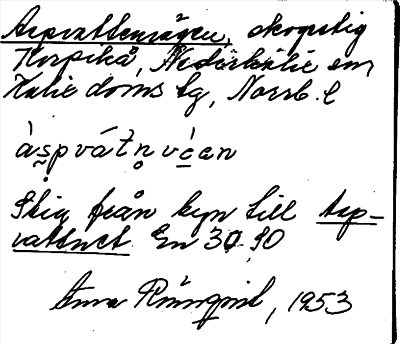 Aspvattenvägen, skogstig
Korpikå, Nederkalix sn
Kalix doms lg, Norrb. l
àspvátṇ vä̀en
Stig från byn till Asp-
vattnet. En 30 90
Anna Rönnqvist, 1953